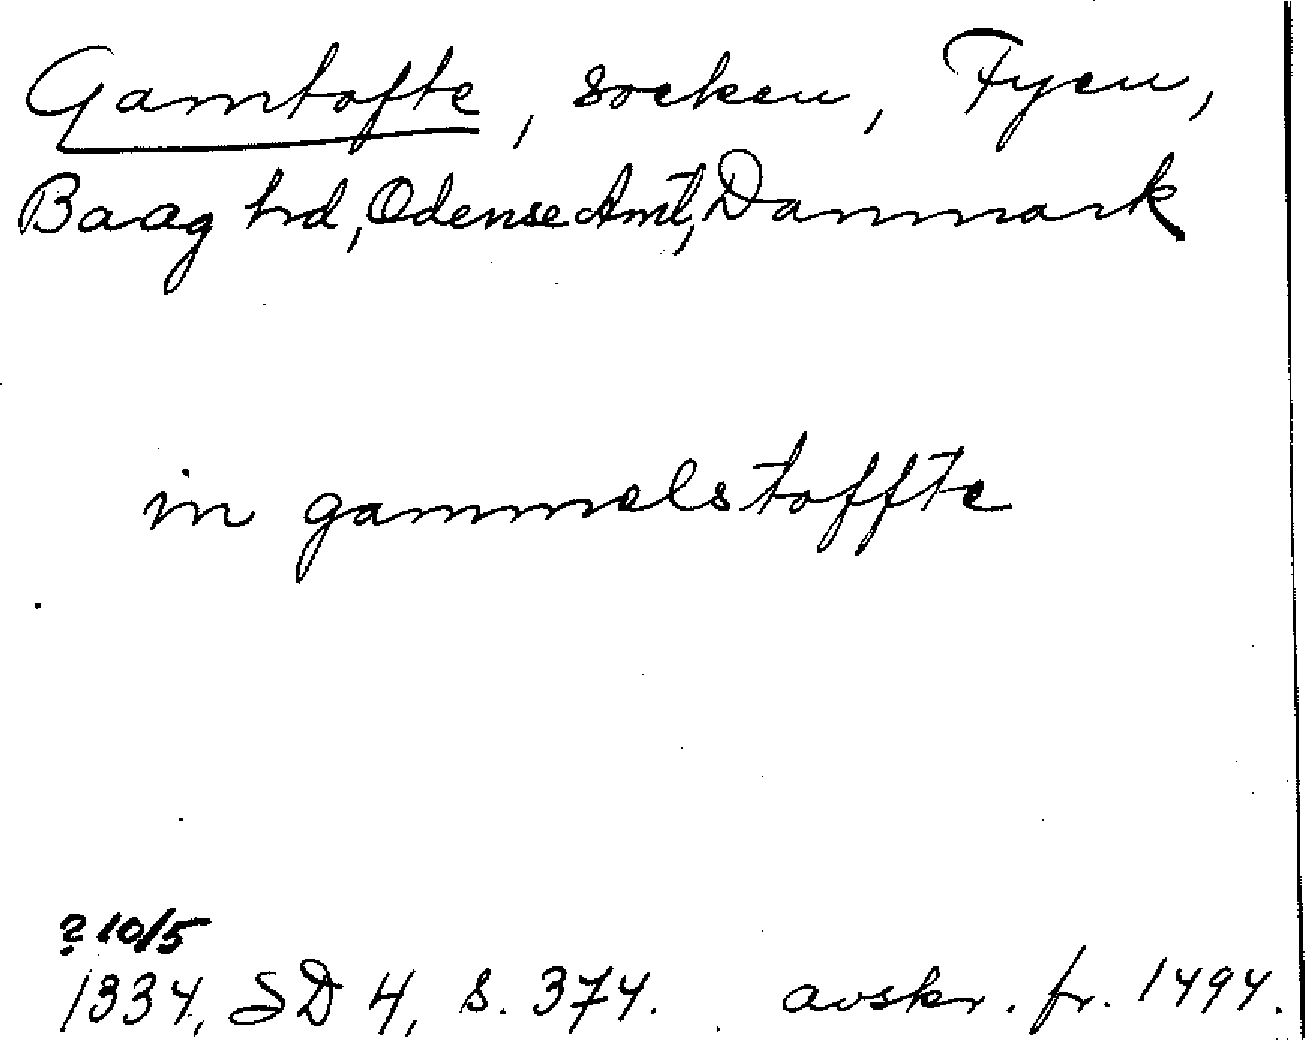 Gamtofte, socken, Fyen,
Baag hrd, Odense Amt, Danmark
in gammelstoffte
? 10/5
1334, SD 4, s. 374. avskr. fr. 1494.